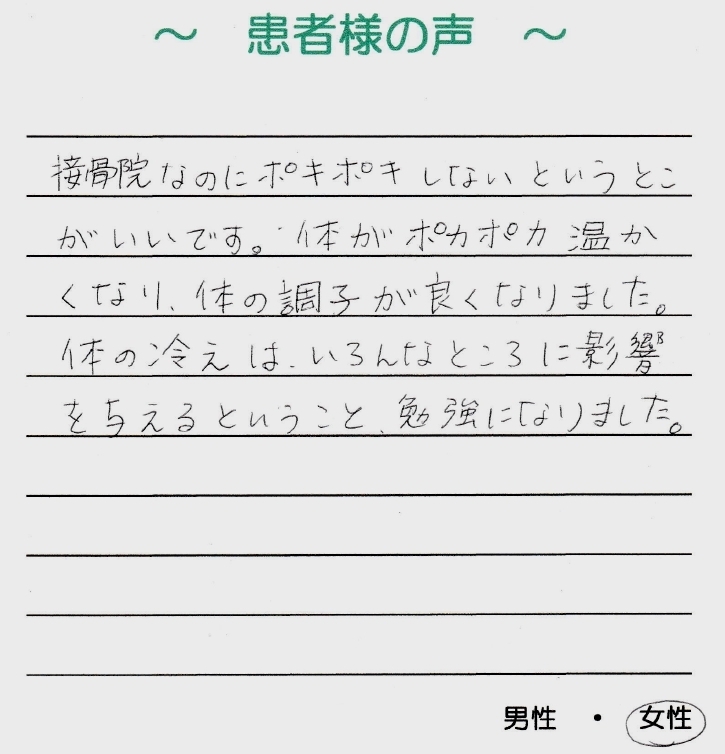 ～ 患者様の声 ～
接骨院なのにポキポキしないというとこ
がいいです。体がポカポカ温か
くなり、体の調子が良くなりました。
体の冷えは、いろんなところに影響
を与えるということ、勉強になりました。
男性 ・ 女性